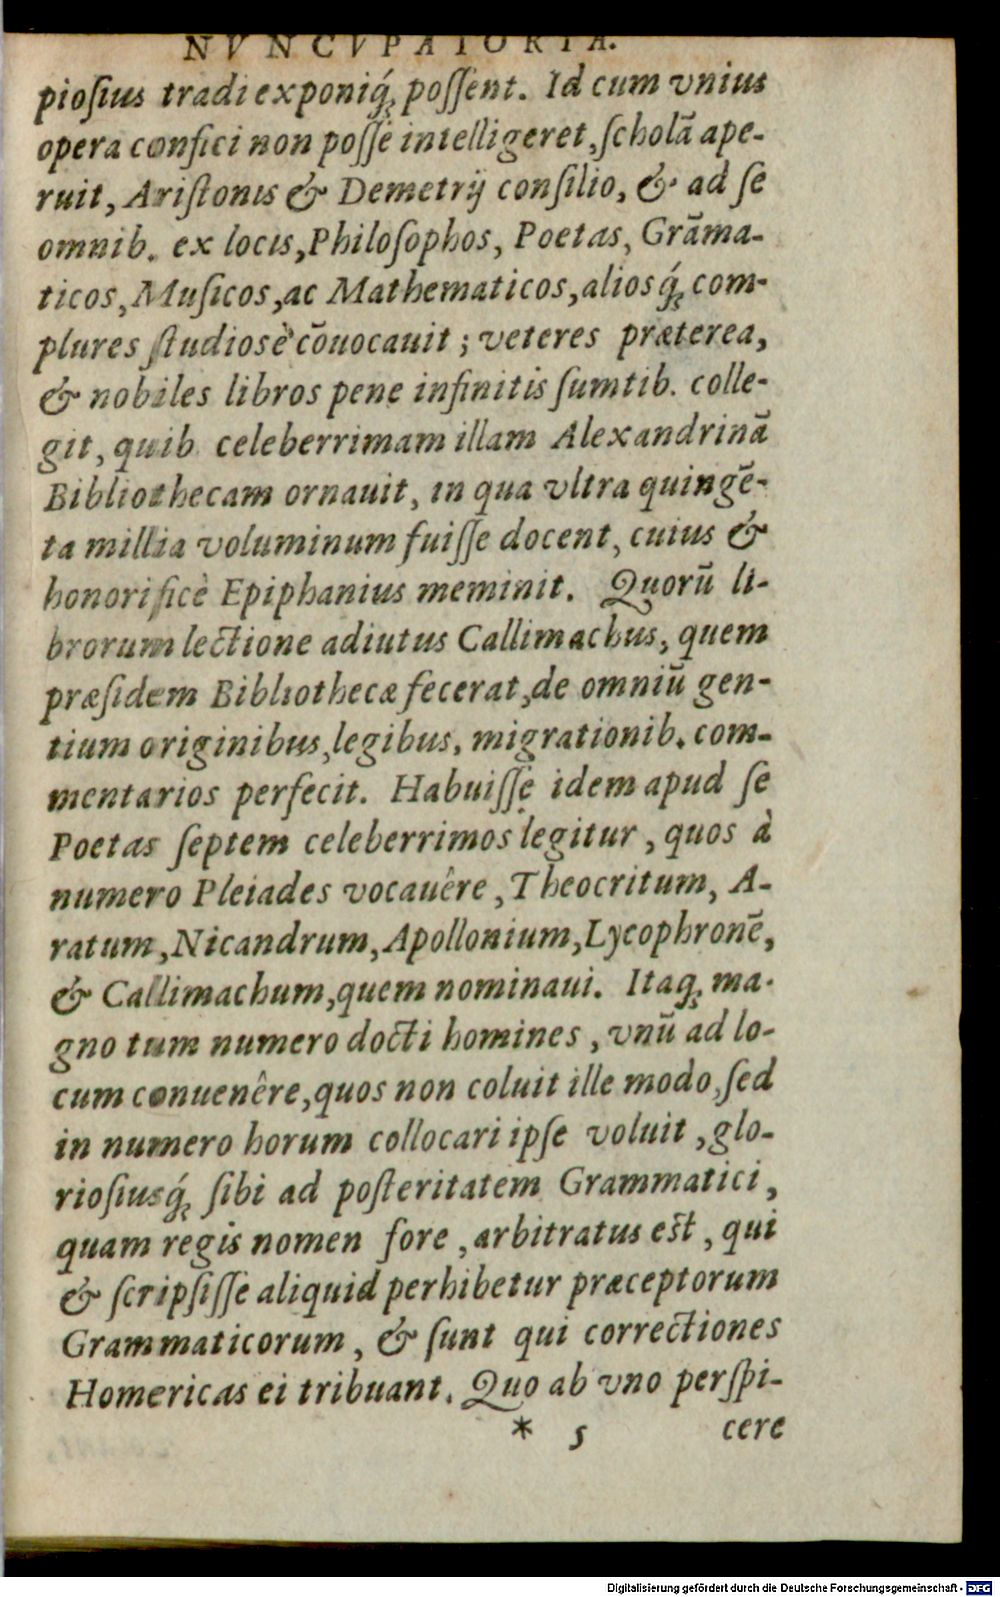 NVNCVPATORIA.
pioſius tradi exponiq́ꝫ poſſent. Id cum vnius
opera confici non poſſe intelligeret, ſcholã ape-
ruit, Ariſtonis & Demetrij conſilio, & ad ſe
omnib. ex locis, Philoſophos, Poetas, Grãma-
ticos, Muſicos, ac Mathematicos, alios q́ꝫ com-
plures ſtudiosè cõuocauit ; veteres præterea,
& nobiles libros pene infinitis ſumtib. colle-
git, quib. celeberrimam illam Alexandrinã
Bibliothecam ornauit, in qua vltra quingẽ-
ta millia voluminum fuiſſe docent, cuius &
honorificè Epiphanius meminit. Quorũ li-
brorum lectione adiutus Callimachus, quem
præſidem Bibliothecæ fecerat, de omniũ gen-
tium originibus, legibus, migrationib. com-
mentarios perfecit. Habuiſſe idem apud ſe
Poetas ſeptem celeberrimos legitur, quos à
numero Pleiades vocauêre, Theocritum, A-
ratum, Nicandrum, Apollonium, Lycophronẽ,
& Callimachum, quem nominaui. Itaqꝫ ma-
gno tum numero docti homines, vnũ ad lo-
cum conuenêre, quos non coluit ille modo, ſed
in numero horum collocari ipſe voluit, glo-
rioſiusq́ꝫ ſibi ad poſteritatem Grammatici,
quam regis nomen fore, arbitratus eſt, qui
& ſcripſiſſe aliquid perhibetur præceptorum
Grammaticorum, & ſunt qui correctiones
Homericas ei tribuant. Quo ab vno perſpi-
* 5 cere
Digitalisierung gefördert durch die Deutsche Forschungsgemeinschaft - DFG